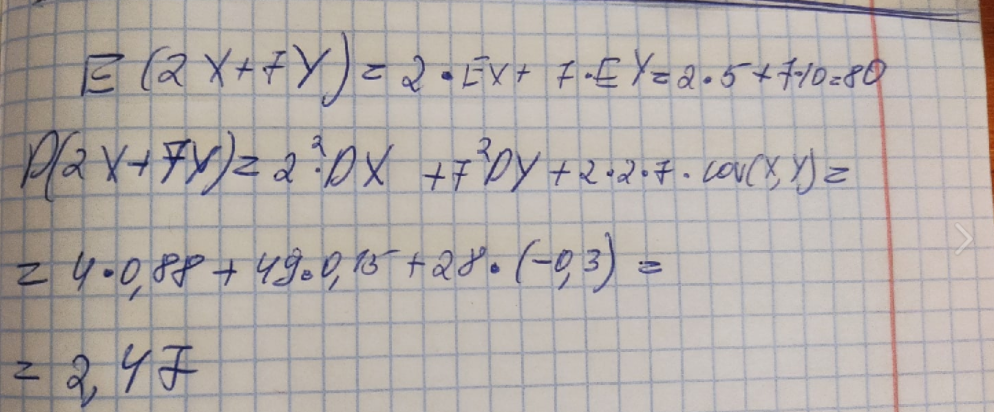 E (2X+7Y) = 2·EX + 7·EY = 2·5+7·10=80
D(2X+7Y) = 2²·DX + 7²DY + 2·2·7·cov(X,Y) =
= 4·0,88 + 49·0,15 + 28·(-0,3) =
= 2,47